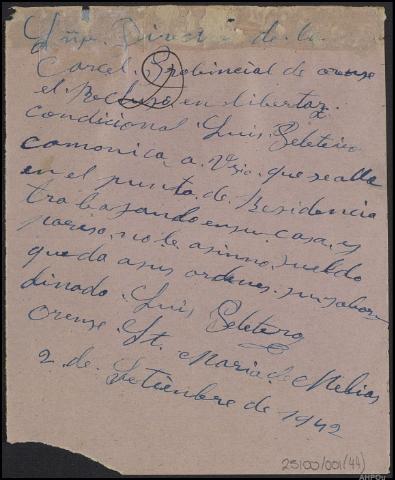 Director de la
Carcel Probincial de orense
el Recluso en libertaz
condicional. Luis Peleteiro
comonica a que se alla
en el punto de Residencia
trabajando en su casa, y
no le asinno sueldo
queda a sus ordenes su subor
dinado. Luis Peleteiro
Orense St. Maria de Melias
2 de Setienbre de 1942
25100/001(44)
AHPOu